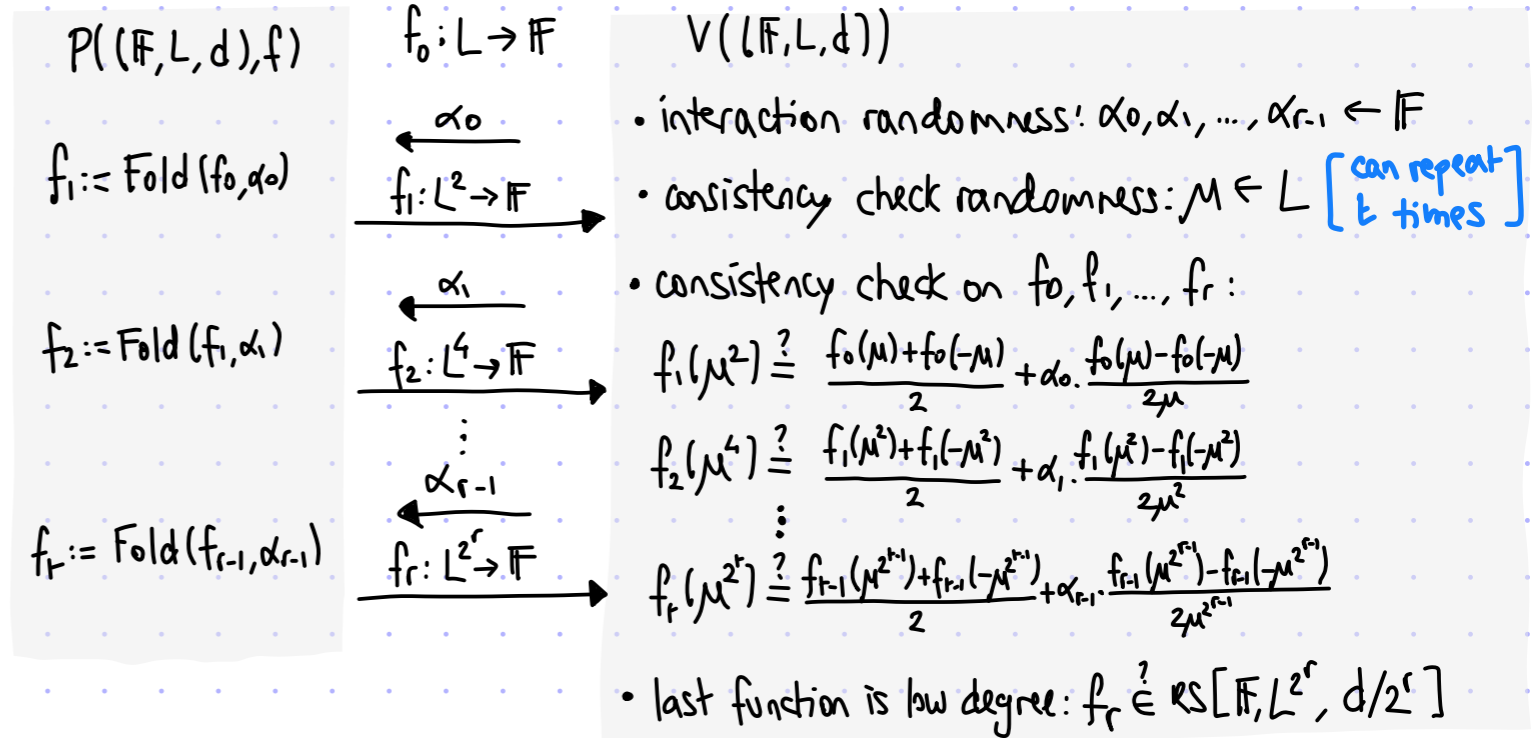 P((𝔽, L, d), f)
f₁ := Fold(f₀, α₀)
f₂ := Fold(f₁, α₁)
fᵣ := Fold(fᵣ₋₁, αᵣ₋₁)
f₀ : L → 𝔽
α₀
f₁ : L² → 𝔽
α₁
f₂ : L⁴ → 𝔽
⋮
αᵣ₋₁
fᵣ : L^{2^r} → 𝔽
V((𝔽, L, d))
• interaction randomness: α₀, α₁, ..., αᵣ₋₁ ← 𝔽
• consistency check randomness: μ ∈ L [can repeat
t times]
• consistency check on f₀, f₁, ..., fᵣ :
f₁(μ²) ≟ (f₀(μ)+f₀(-μ))/2 + α₀ · (f₀(μ)-f₀(-μ))/(2μ)
f₂(μ⁴) ≟ (f₁(μ²)+f₁(-μ²))/2 + α₁ · (f₁(μ²)-f₁(-μ²))/(2μ²)
⋮
fᵣ(μ^{2^r}) ≟ (fᵣ₋₁(μ^{2^{r-1}})+fᵣ₋₁(-μ^{2^{r-1}}))/2 + αᵣ₋₁ · (fᵣ₋₁(μ^{2^{r-1}})-fᵣ₋₁(-μ^{2^{r-1}}))/(2μ^{2^{r-1}})
• last function is low degree: fᵣ ∈? RS[𝔽, L^{2^r}, d/2^r]